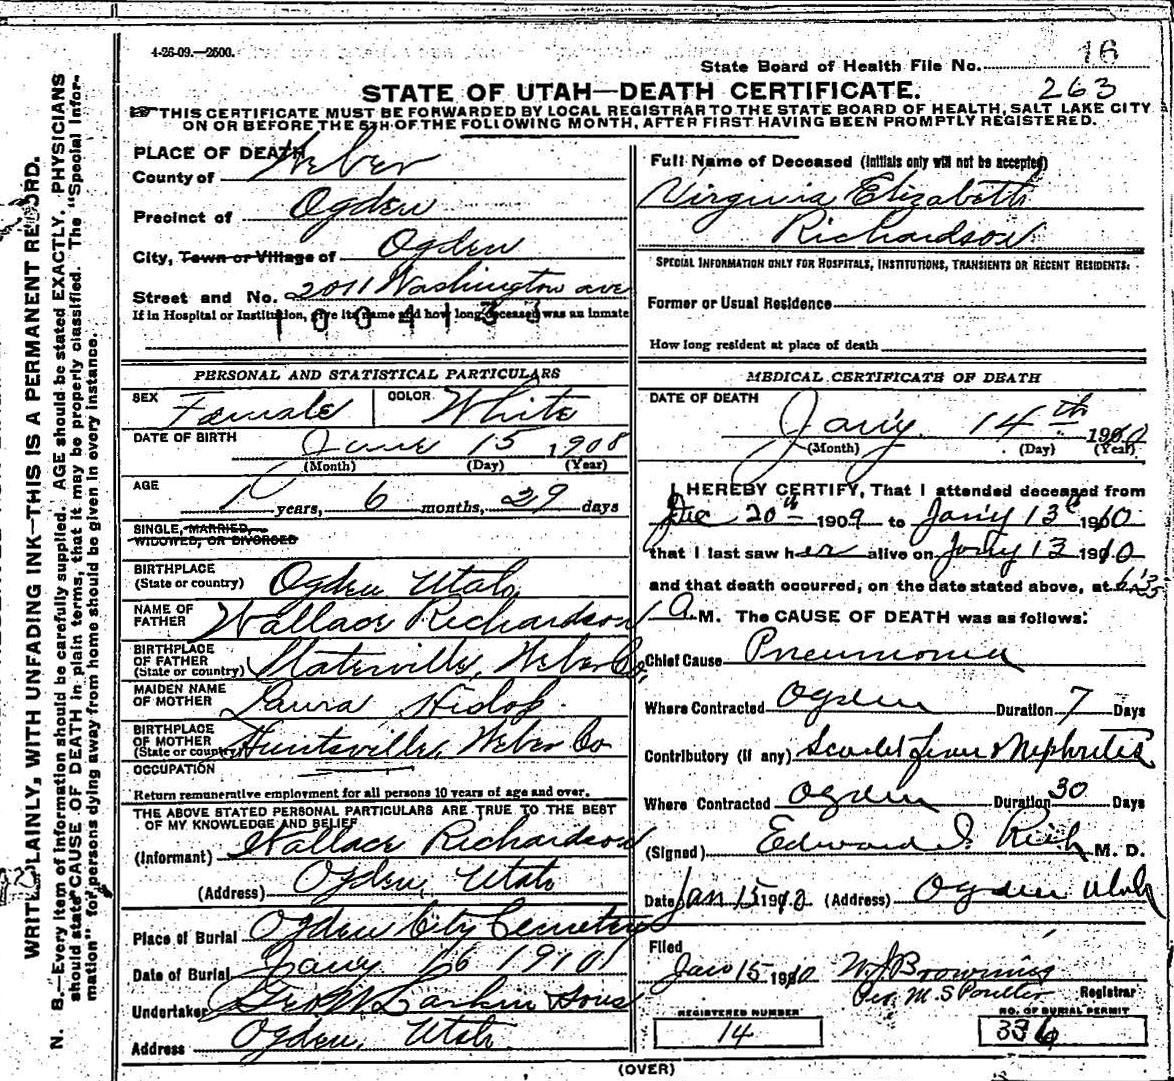 4-26-09.—2500.
State Board of Health File No. 16
263
STATE OF UTAH—DEATH CERTIFICATE.
THIS CERTIFICATE MUST BE FORWARDED BY LOCAL REGISTRAR TO THE STATE BOARD OF HEALTH, SALT LAKE CITY
ON OR BEFORE THE 5TH OF THE FOLLOWING MONTH, AFTER FIRST HAVING BEEN PROMPTLY REGISTERED.
WRITE PLAINLY, WITH UNFADING INK—THIS IS A PERMANENT RECORD.
N. B.—Every item of information should be carefully supplied. AGE should be stated EXACTLY. PHYSICIANS
should state CAUSE OF DEATH in plain terms, that it may be properly classified. The "Special Infor-
mation" for persons dying away from home should be given in every instance.
PLACE OF DEATH
County of Weber
Precinct of Ogden
City, Town or Village of Ogden
Street and No. 2011 Washington ave
If in Hospital or Institution, give its name and how long deceased was an inmate
1004133
PERSONAL AND STATISTICAL PARTICULARS
SEX Female COLOR White
DATE OF BIRTH June 15 1908
(Month) (Day) (Year)
AGE 1 years, 6 months, 29 days
SINGLE, MARRIED,
WIDOWED, OR DIVORCED
BIRTHPLACE
(State or country) Ogden Utah
NAME OF
FATHER Wallace Richardson
BIRTHPLACE
OF FATHER
(State or country) Slaterville, Weber Co,
MAIDEN NAME
OF MOTHER Laura Hislop.
BIRTHPLACE
OF MOTHER
(State or country) Huntsville, Weber Co
OCCUPATION
Return remunerative employment for all persons 10 years of age and over.
THE ABOVE STATED PERSONAL PARTICULARS ARE TRUE TO THE BEST
OF MY KNOWLEDGE AND BELIEF
(Informant) Wallace Richardson
(Address) Ogden, Utah
Place of Burial Ogden City Cemetery
Date of Burial Jany 16 1910
Undertaker Larkin Sons
Address Ogden, Utah
Full Name of Deceased (Initials only will not be accepted)
Virginia Elizabeth
Richardson
SPECIAL INFORMATION ONLY FOR HOSPITALS, INSTITUTIONS, TRANSIENTS OR RECENT RESIDENTS:
Former or Usual Residence
How long resident at place of death
MEDICAL CERTIFICATE OF DEATH
DATE OF DEATH
Jany. 14th 1910
(Month) (Day) (Year)
I HEREBY CERTIFY, That I attended deceased from
Dec 20th 1909 to Jany 13th 1910
that I last saw her alive on Jany 13 1910
and that death occurred, on the date stated above, at
a M. The CAUSE OF DEATH was as follows:
Chief Cause Pneumonia
Where Contracted Ogden Duration 7 Days
Contributory (if any) Scarlet fever & Nephritis
Where Contracted Ogden Duration 30 Days
(Signed) Edward I. Rich M. D.
Date Jan 15 1910 (Address) Ogden Utah
Filed
Jan 15 1910 W J Browning
Per M. S Poulter Registrar
REGISTERED NUMBER
14
NO. OF BURIAL PERMIT
336
(OVER)